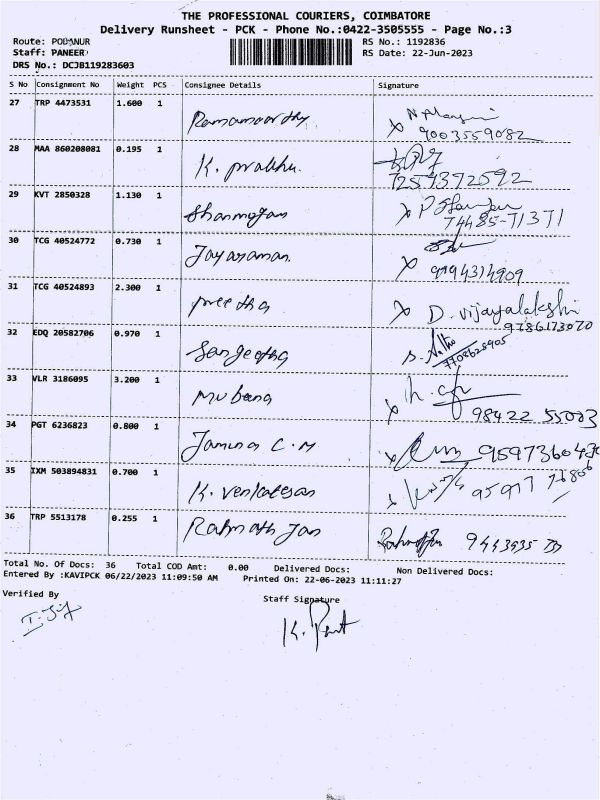 THE PROFESSIONAL COURIERS, COIMBATORE
Delivery Runsheet - PCK - Phone No.:0422-3505555 - Page No.:3
Route: PODANUR
RS No.: 1192836
Staff: PANEER
RS Date: 22-Jun-2023
DRS No.: DCJB119283603
S No Consignment No Weight PCS Consignee Details Signature
27 TRP 4473531 1.600 1 Ramamoorthy
9003559082
28 MAA 860208081 0.195 1 K. prabhu.
7259392592
29 KVT 2850328 1.130 1 Shanmugam
74485-71371
30 TCG 40524772 0.730 1 Jayaraman.
9194314909
31 TCG 40524893 2.300 1 preetha D. vijayalakshi
9786173070
32 EDQ 20582706 0.970 1 Sangeetha
7708625905
33 VLR 3186095 3.200 1 Mubeena
98422 55003
34 PGT 6236823 0.800 1 Jamuna C.M
35 IXM 503894831 0.700 1 K. venkatesan
36 TRP 5513178 0.255 1 Rahmath Jan
Total No. Of Docs: 36 Total COD Amt: 0.00 Delivered Docs: Non Delivered Docs:
Entered By :KAVIPCK 06/22/2023 11:09:50 AM Printed On: 22-06-2023 11:11:27
Verified By
Staff Signature